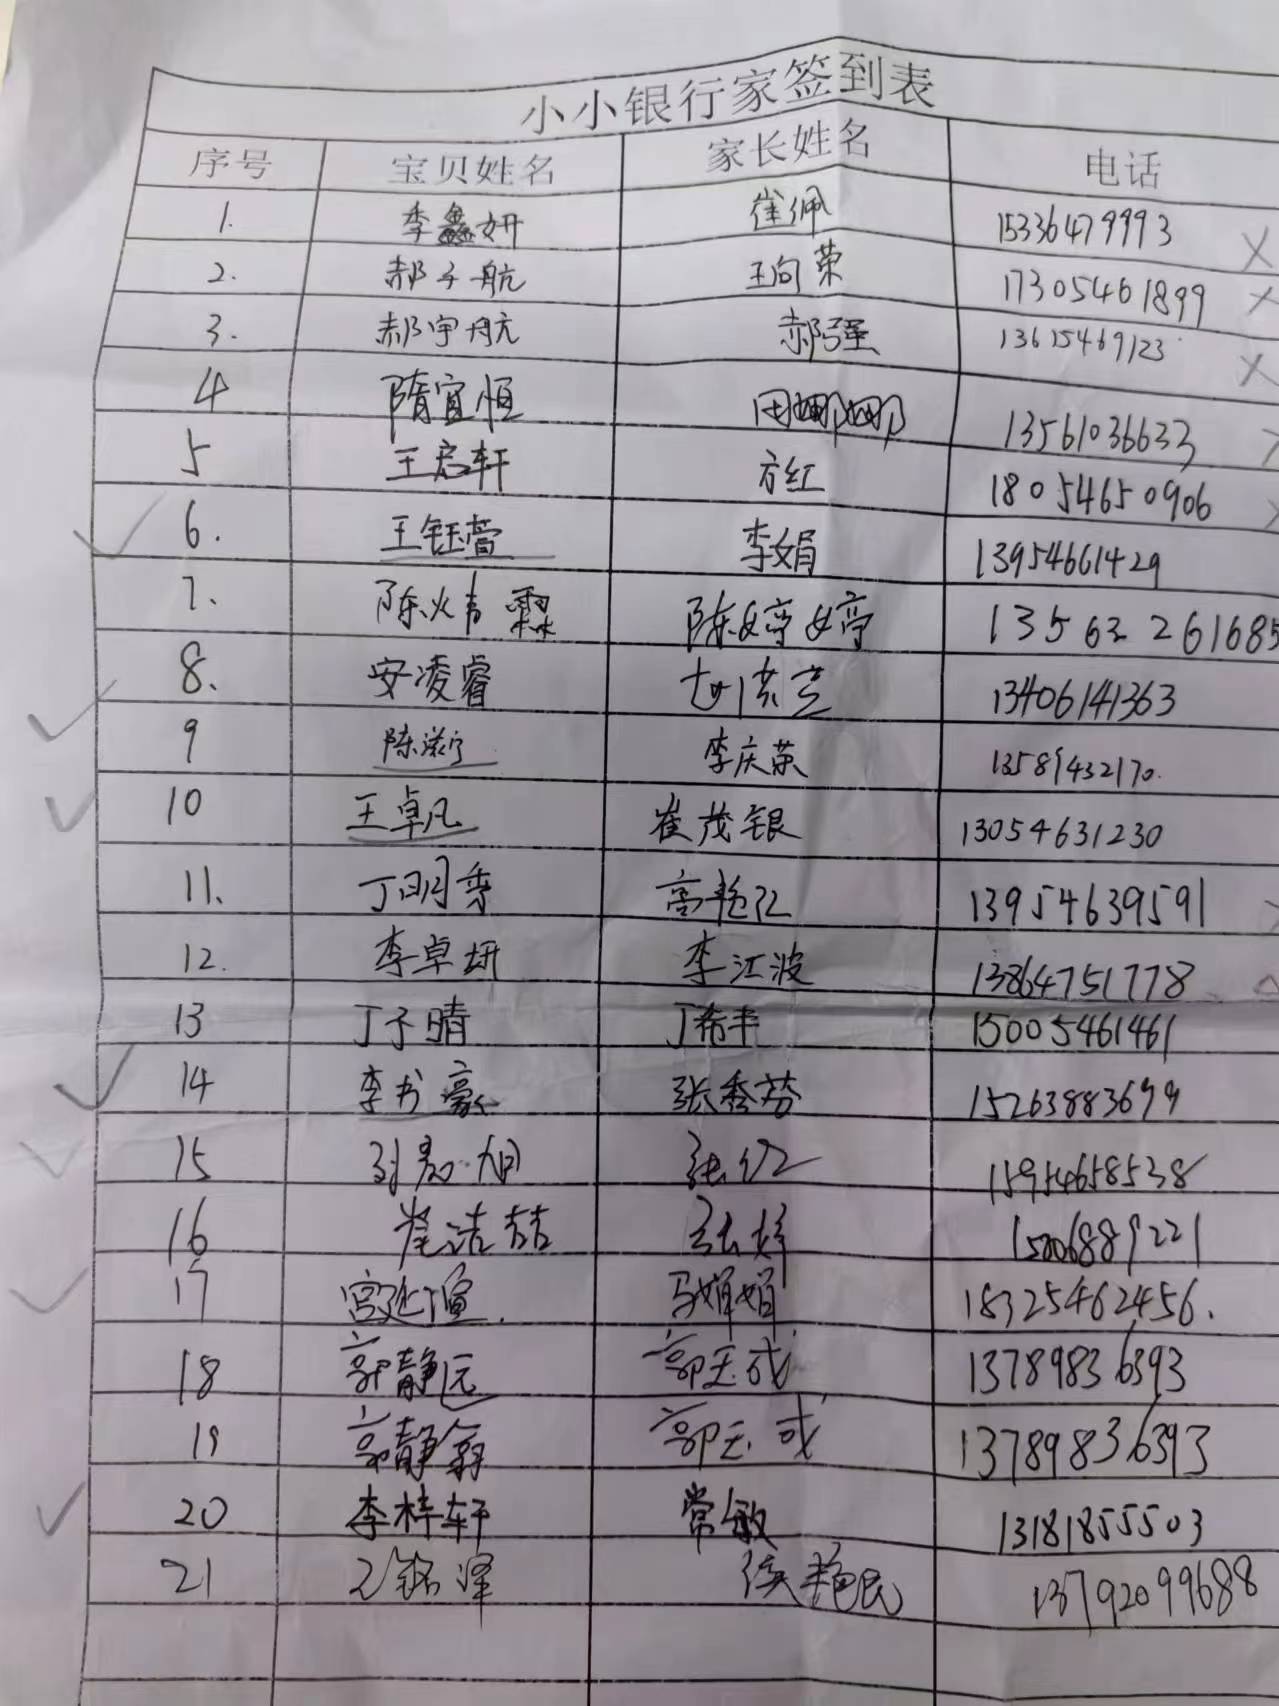 小小银行家签到表
序号 宝贝姓名 家长姓名 电话
1. 李鑫妍 崔佩 15336479993 X
2. 郝子航 王向荣 17305461899 X
3. 郝宇航 郝强 13615469123 X
4 隋宜恒 田娜娜 13561036633
5 王启轩 方红 18054650906
6. 王钰萱 李娟 13954661429
7. 陈炜霖 陈婷婷 13563261685
8. 安凌睿 13406141363
9 陈滋宁 李庆荣 13589432170.
10 王卓凡 崔茂银 13054631230
11. 丁明秀 高艳红 13954639591
12. 李卓妍 李江波 13864751778
13 丁子晴 丁希丰 15005461461
14 李书豪 张秀芬 15263883699
15 15954658538
16 崔洁喆 15006889221
17 宫延渲 马娟娟 18325462456.
18 郭静远 郭玉成 13789836393
19 郭静翕 郭玉成 13789836393
20 李梓轩 常敏 13181855503
21 侯艳民 13792099688